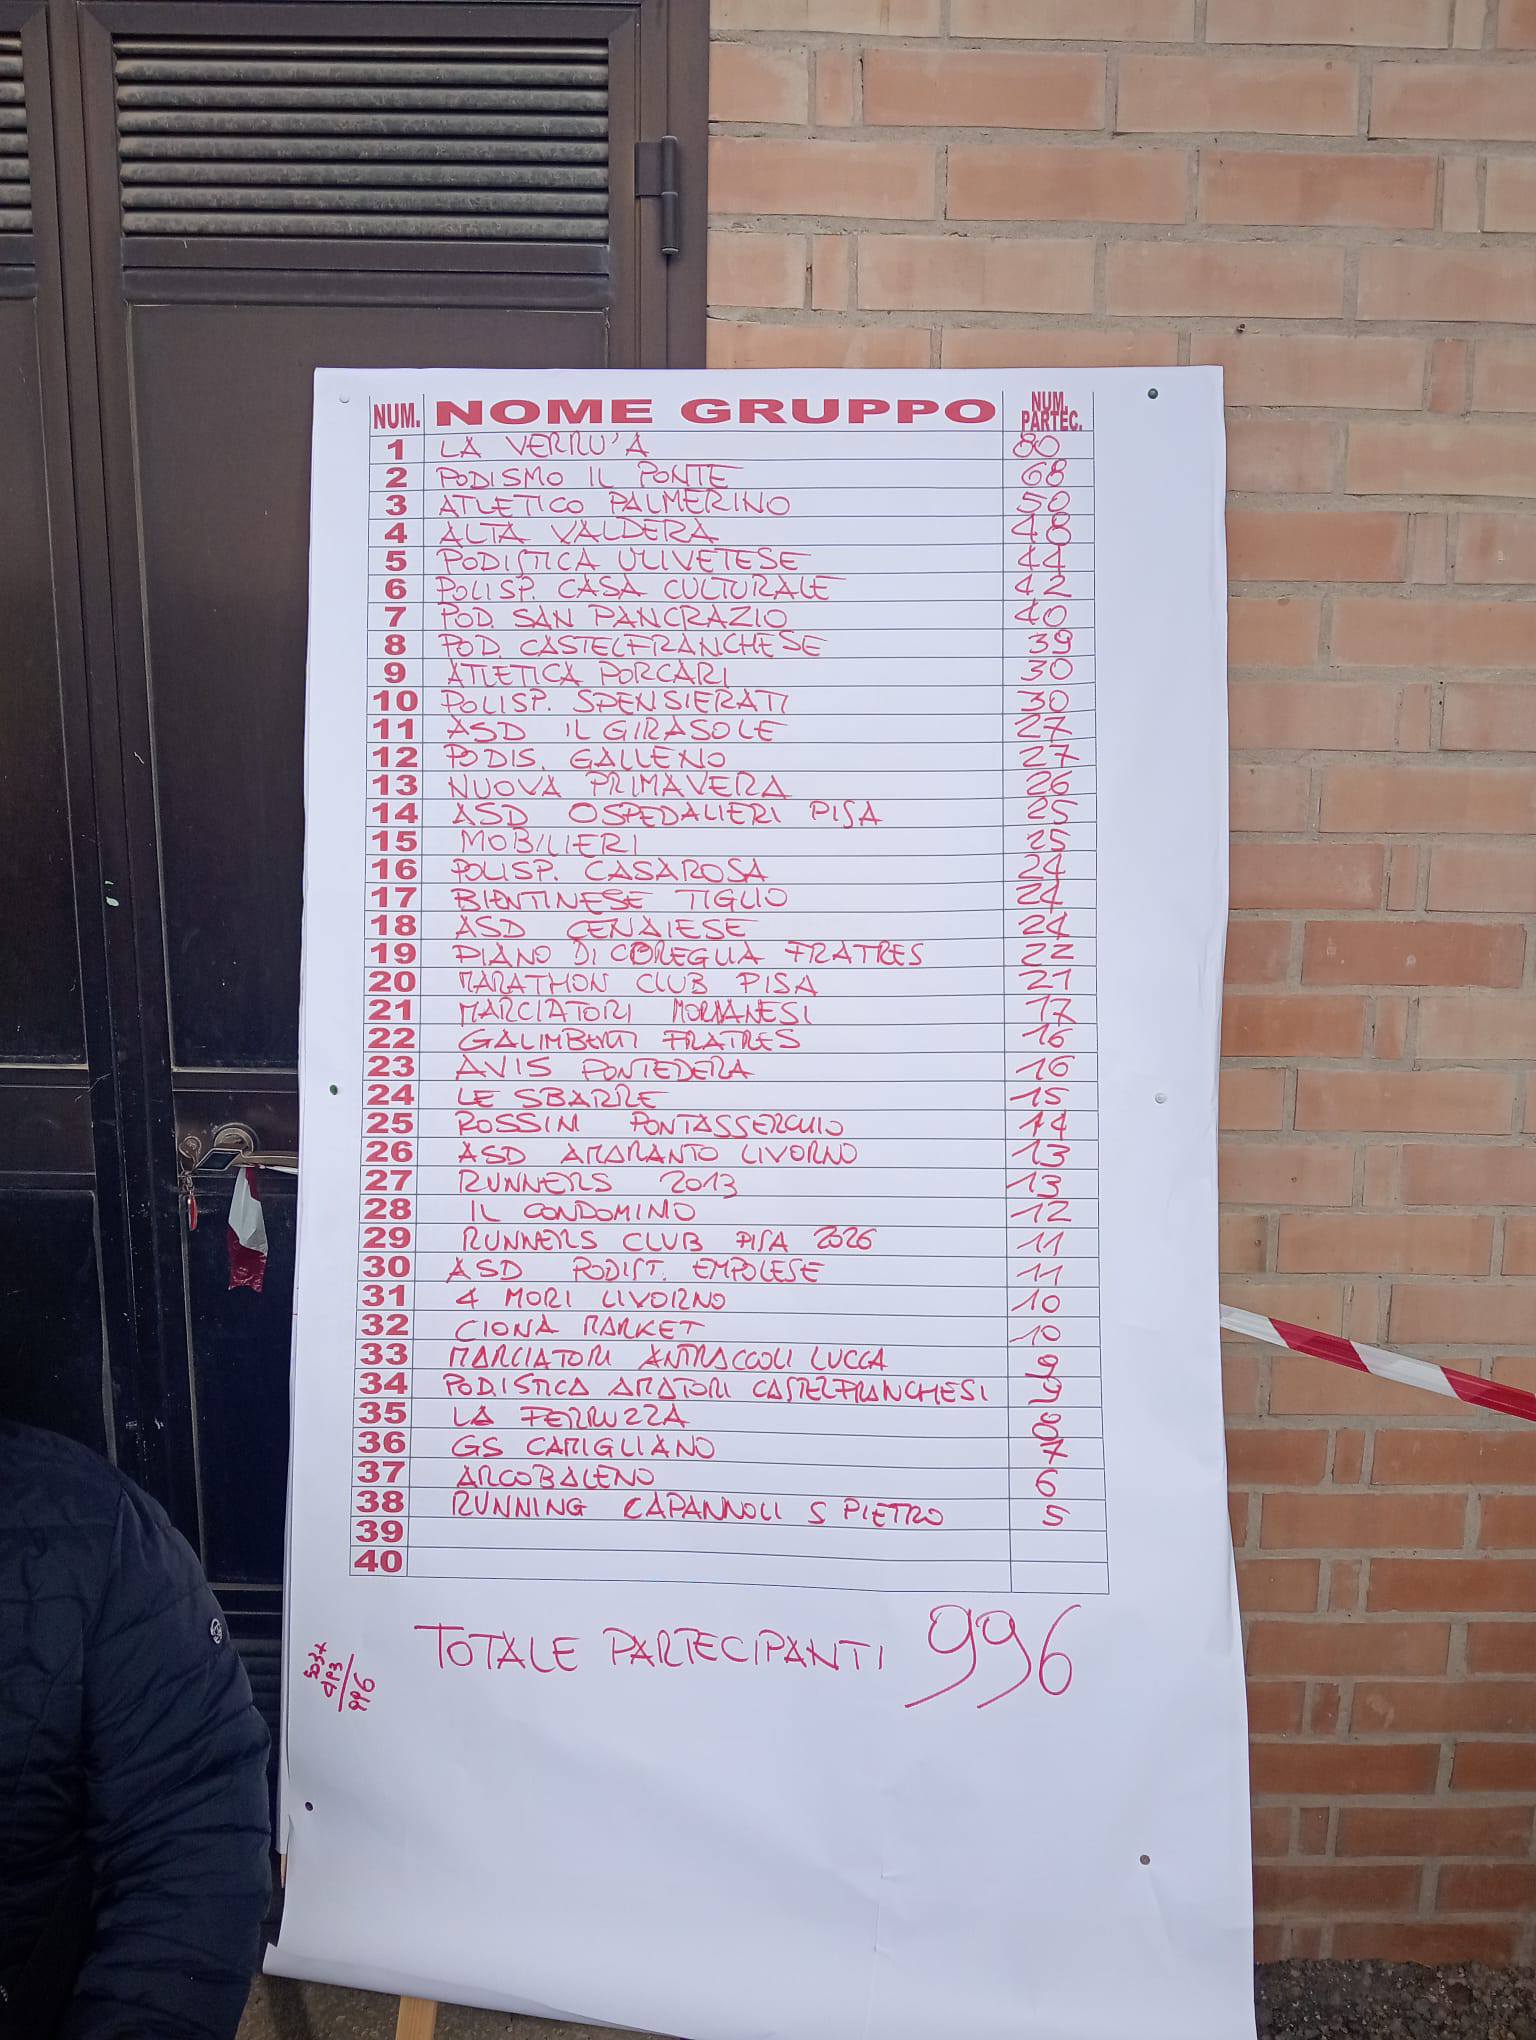 NUM. NOME GRUPPO NUM. PARTEC.
1 LA VERRU'A 80
2 PODISMO IL PONTE 68
3 ATLETICO PALMERINO 50
4 ALTA VALDERA 48
5 PODISTICA ULIVETESE 44
6 POLISP. CASA CULTURALE 42
7 POD. SAN PANCRAZIO 40
8 POD. CASTELFRANCHESE 39
9 ATLETICA PORCARI 30
10 POLISP. SPENSIERATI 30
11 ASD IL GIRASOLE 27
12 PODIS. GALLENO 27
13 NUOVA PRIMAVERA 26
14 ASD OSPEDALIERI PISA 25
15 MOBILIERI 25
16 POLISP. CASAROSA 24
17 BIENTINESE TIGLIO 24
18 ASD CENAIESE 24
19 PIANO DI COREGLIA FRATRES 22
20 MARATHON CLUB PISA 21
21 MARCIATORI MORIANESI 17
22 GALIMBERTI FRATRES 16
23 AVIS PONTEDERA 16
24 LE SBARRE 15
25 ROSSINI PONTASSERCHIO 14
26 ASD AMARANTO LIVORNO 13
27 RUNNERS 2013 13
28 IL CONDOMINIO 12
29 RUNNERS CLUB PISA 2026 11
30 ASD PODIST. EMPOLESE 11
31 4 MORI LIVORNO 10
32 CIONA MARKET 10
33 MARCIATORI ANTRACCOLI LUCCA 9
34 PODISTICA AMATORI CASTELFRANCHESI 9
35 LA FERRUZZA 8
36 GS CARIGLIANO 7
37 ARCOBALENO 6
38 RUNNING CAPANNOLI S PIETRO 5
39
40
TOTALE PARTECIPANTI 996
503+
493
996